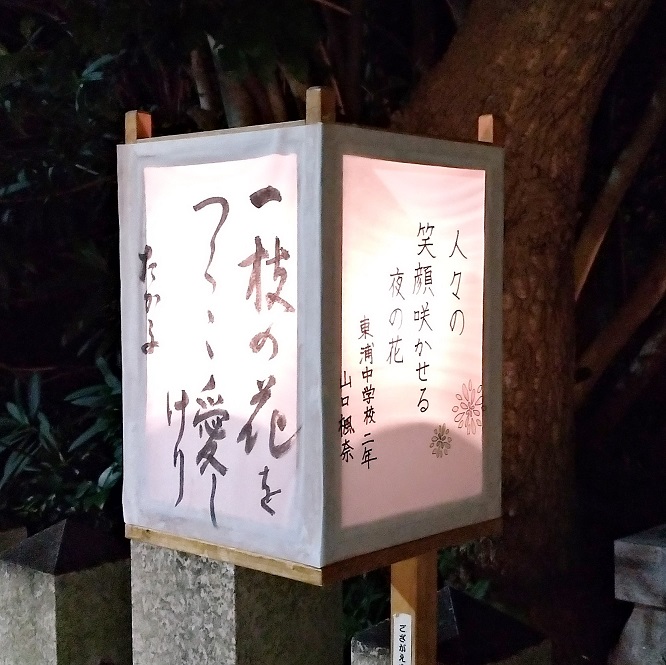 人々の
笑顔咲かせる
夜の花
東浦中学校二年
山口楓奈
一枝の花を
つくづく愛し
けり
ござがえ